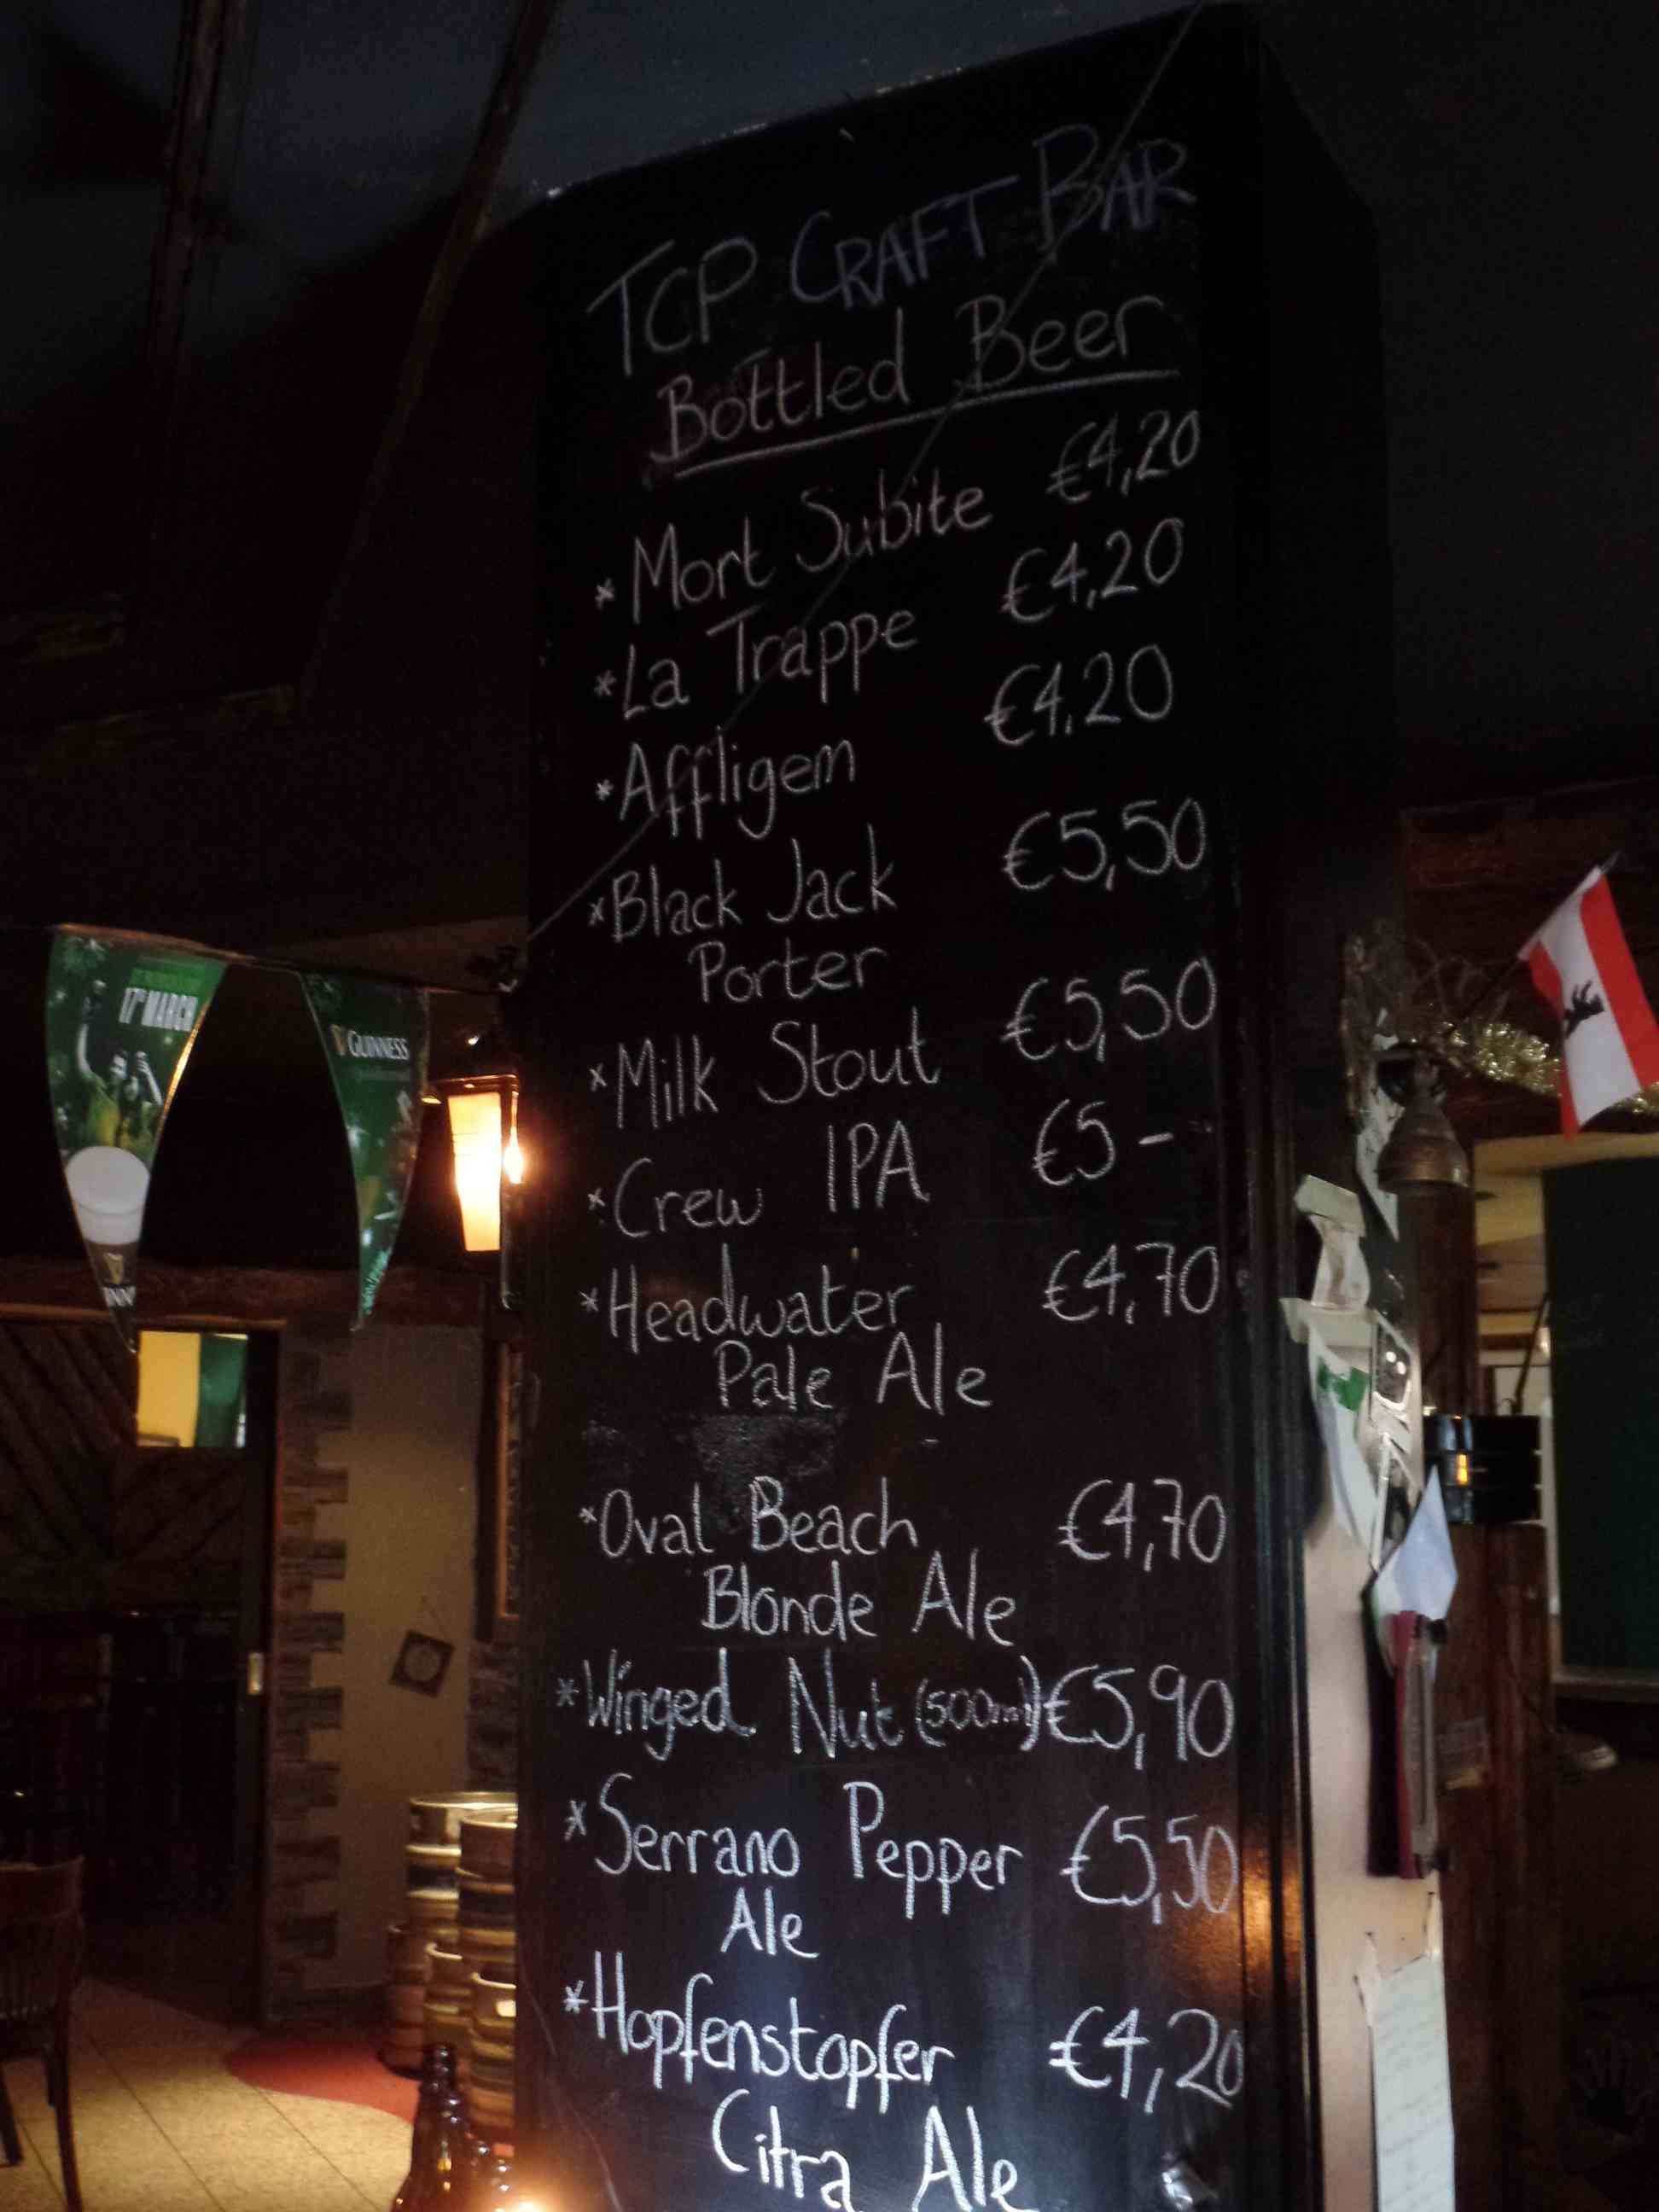 TCP CRAFT BAR
Bottled Beer
* Mort Subite €4,20
* La Trappe €4,20
* Affligem €4.20
* Black Jack €5,50
Porter
* Milk Stout €5,50
* Crew IPA €5-
* Headwater €4,70
Pale Ale
* Oval Beach €4,70
Blonde Ale
* Winged Nut (500ml) €5,90
* Serrano Pepper €5,50
Ale
* Hopfenstopfer €4,20
Citra Ale
17TH MARCH
GUINNESS